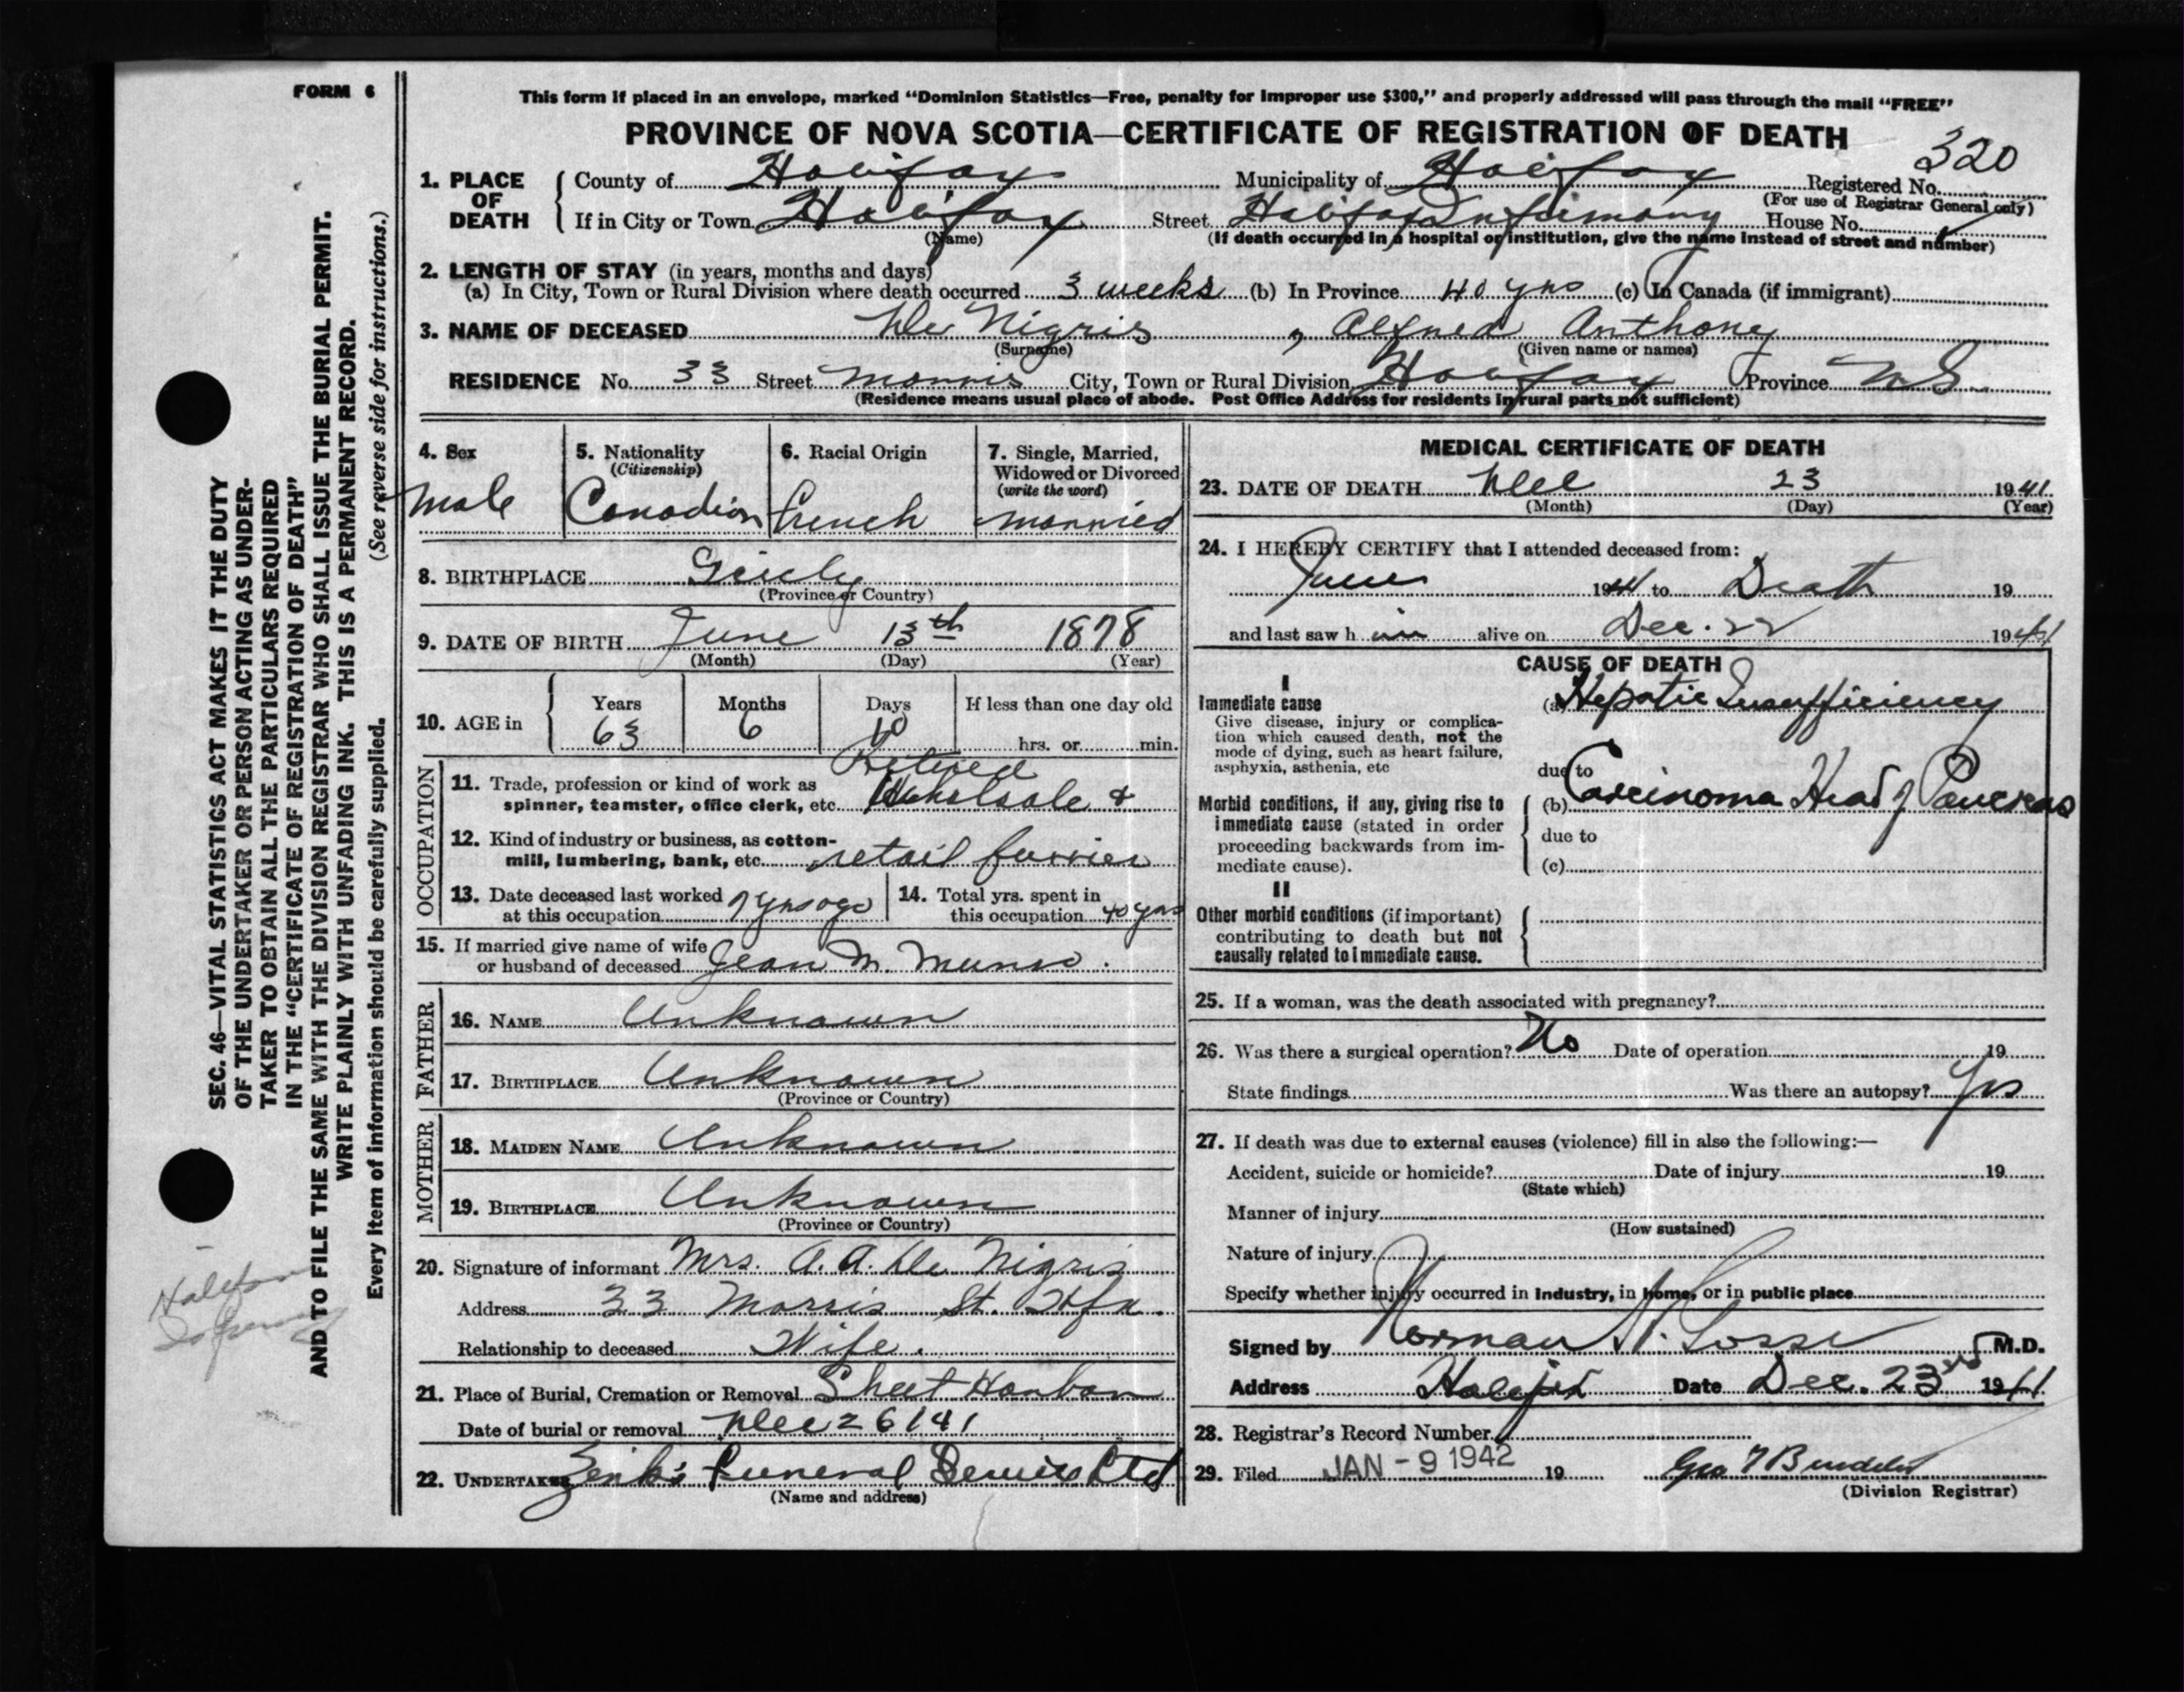 FORM 6
This form if placed in an envelope, marked “Dominion Statistics—Free, penalty for improper use $300,” and properly addressed will pass through the mail “FREE”
PROVINCE OF NOVA SCOTIA—CERTIFICATE OF REGISTRATION OF DEATH
320
1. PLACE OF DEATH { County of Halifax Municipality of Halifax Registered No.
(For use of Registrar General only)
If in City or Town Halifax Street Halifax Infirmary House No.
(Name) (If death occurred in a hospital or institution, give the name instead of street and number)
2. LENGTH OF STAY (in years, months and days)
(a) In City, Town or Rural Division where death occurred 3 weeks (b) In Province 40 yrs (c) In Canada (if immigrant)
3. NAME OF DECEASED De Nigris, Alfred Anthony
(Surname) (Given name or names)
RESIDENCE No. 33 Street Morris City, Town or Rural Division Halifax Province N.S.
(Residence means usual place of abode. Post Office Address for residents in rural parts not sufficient)
4. Sex
Male
5. Nationality
(Citizenship)
Canadian
6. Racial Origin
French
7. Single, Married, Widowed or Divorced
(write the word)
Married
8. BIRTHPLACE
(Province or Country)
9. DATE OF BIRTH June 13th 1878
(Month) (Day) (Year)
10. AGE in { Years Months Days If less than one day old
63 6 10 hrs. or min.
OCCUPATION
Retired
11. Trade, profession or kind of work as
spinner, teamster, office clerk, etc. Wholesale &
12. Kind of industry or business, as cotton-
mill, lumbering, bank, etc. retail furrier
13. Date deceased last worked
at this occupation yrs ago
14. Total yrs. spent in
this occupation 40 yrs
15. If married give name of wife
or husband of deceased Jean M. Munro.
FATHER
16. NAME Unknown
17. BIRTHPLACE Unknown
(Province or Country)
MOTHER
18. MAIDEN NAME Unknown
19. BIRTHPLACE Unknown
(Province or Country)
20. Signature of informant Mrs. A. A. De Nigris
Address 33 Morris St. Hfx.
Relationship to deceased Wife.
21. Place of Burial, Cremation or Removal Sheet Harbor
Date of burial or removal Dec 26/41
22. UNDERTAKER Funeral Service Ltd
(Name and address)
MEDICAL CERTIFICATE OF DEATH
23. DATE OF DEATH Dec 23 1941
(Month) (Day) (Year)
24. I HEREBY CERTIFY that I attended deceased from:
June 1941 to Death 19
and last saw him alive on Dec. 22 1941
CAUSE OF DEATH
I
Immediate cause (a) Hepatic Insufficiency
Give disease, injury or complica-
tion which caused death, not the
mode of dying, such as heart failure,
asphyxia, asthenia, etc
due to
Morbid conditions, if any, giving rise to (b) Carcinoma Head of Pancreas
immediate cause (stated in order
proceeding backwards from im- due to
mediate cause). (c)
II
Other morbid conditions (if important)
contributing to death but not
causally related to immediate cause.
25. If a woman, was the death associated with pregnancy?
26. Was there a surgical operation? No Date of operation 19
State findings Was there an autopsy? Yes
27. If death was due to external causes (violence) fill in also the following:—
Accident, suicide or homicide? Date of injury 19
(State which)
Manner of injury
(How sustained)
Nature of injury
Specify whether injury occurred in industry, in home, or in public place
Signed by Norman M.D.
Address Halifax Date Dec. 23rd 1941
28. Registrar's Record Number
29. Filed JAN - 9 1942 19
(Division Registrar)
SEC. 46—VITAL STATISTICS ACT MAKES IT THE DUTY
OF THE UNDERTAKER OR PERSON ACTING AS UNDER-
TAKER TO OBTAIN ALL THE PARTICULARS REQUIRED
IN THE “CERTIFICATE OF REGISTRATION OF DEATH”
AND TO FILE THE SAME WITH THE DIVISION REGISTRAR WHO SHALL ISSUE THE BURIAL PERMIT.
WRITE PLAINLY WITH UNFADING INK. THIS IS A PERMANENT RECORD.
Every item of information should be carefully supplied. (See reverse side for instructions.)